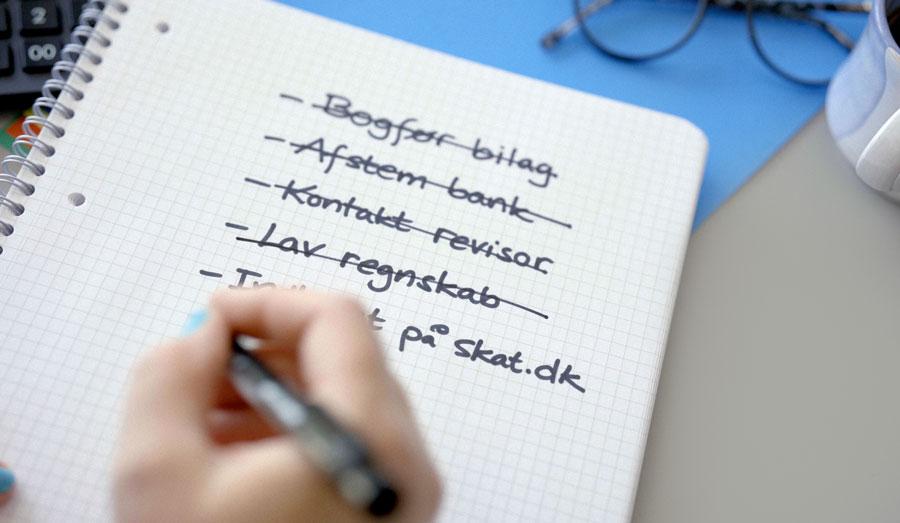 2
00
- Bogfør bilag
- Afstem bank
- Kontakt revisor
- Lav regnskab
- på skat.dk